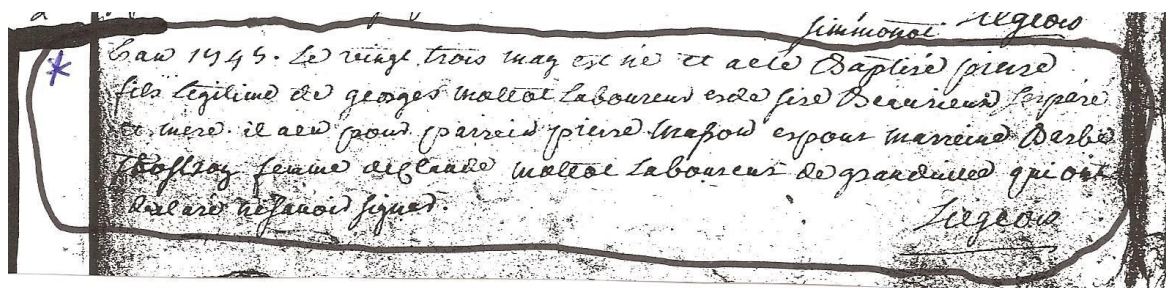 Simmonot Liegeois
L'an 1745. Le vingt trois may est né et a eté Baptisé pierre
fils legitime de georges mottot Laboureur et de Beaurieux ses pere
et mere. il a eu pour parrein pierre masson et pour marreine Barbe
femme de Claude mottot Laboureur de grandville qui ont
declaré ne savoir signer.
Liegeois